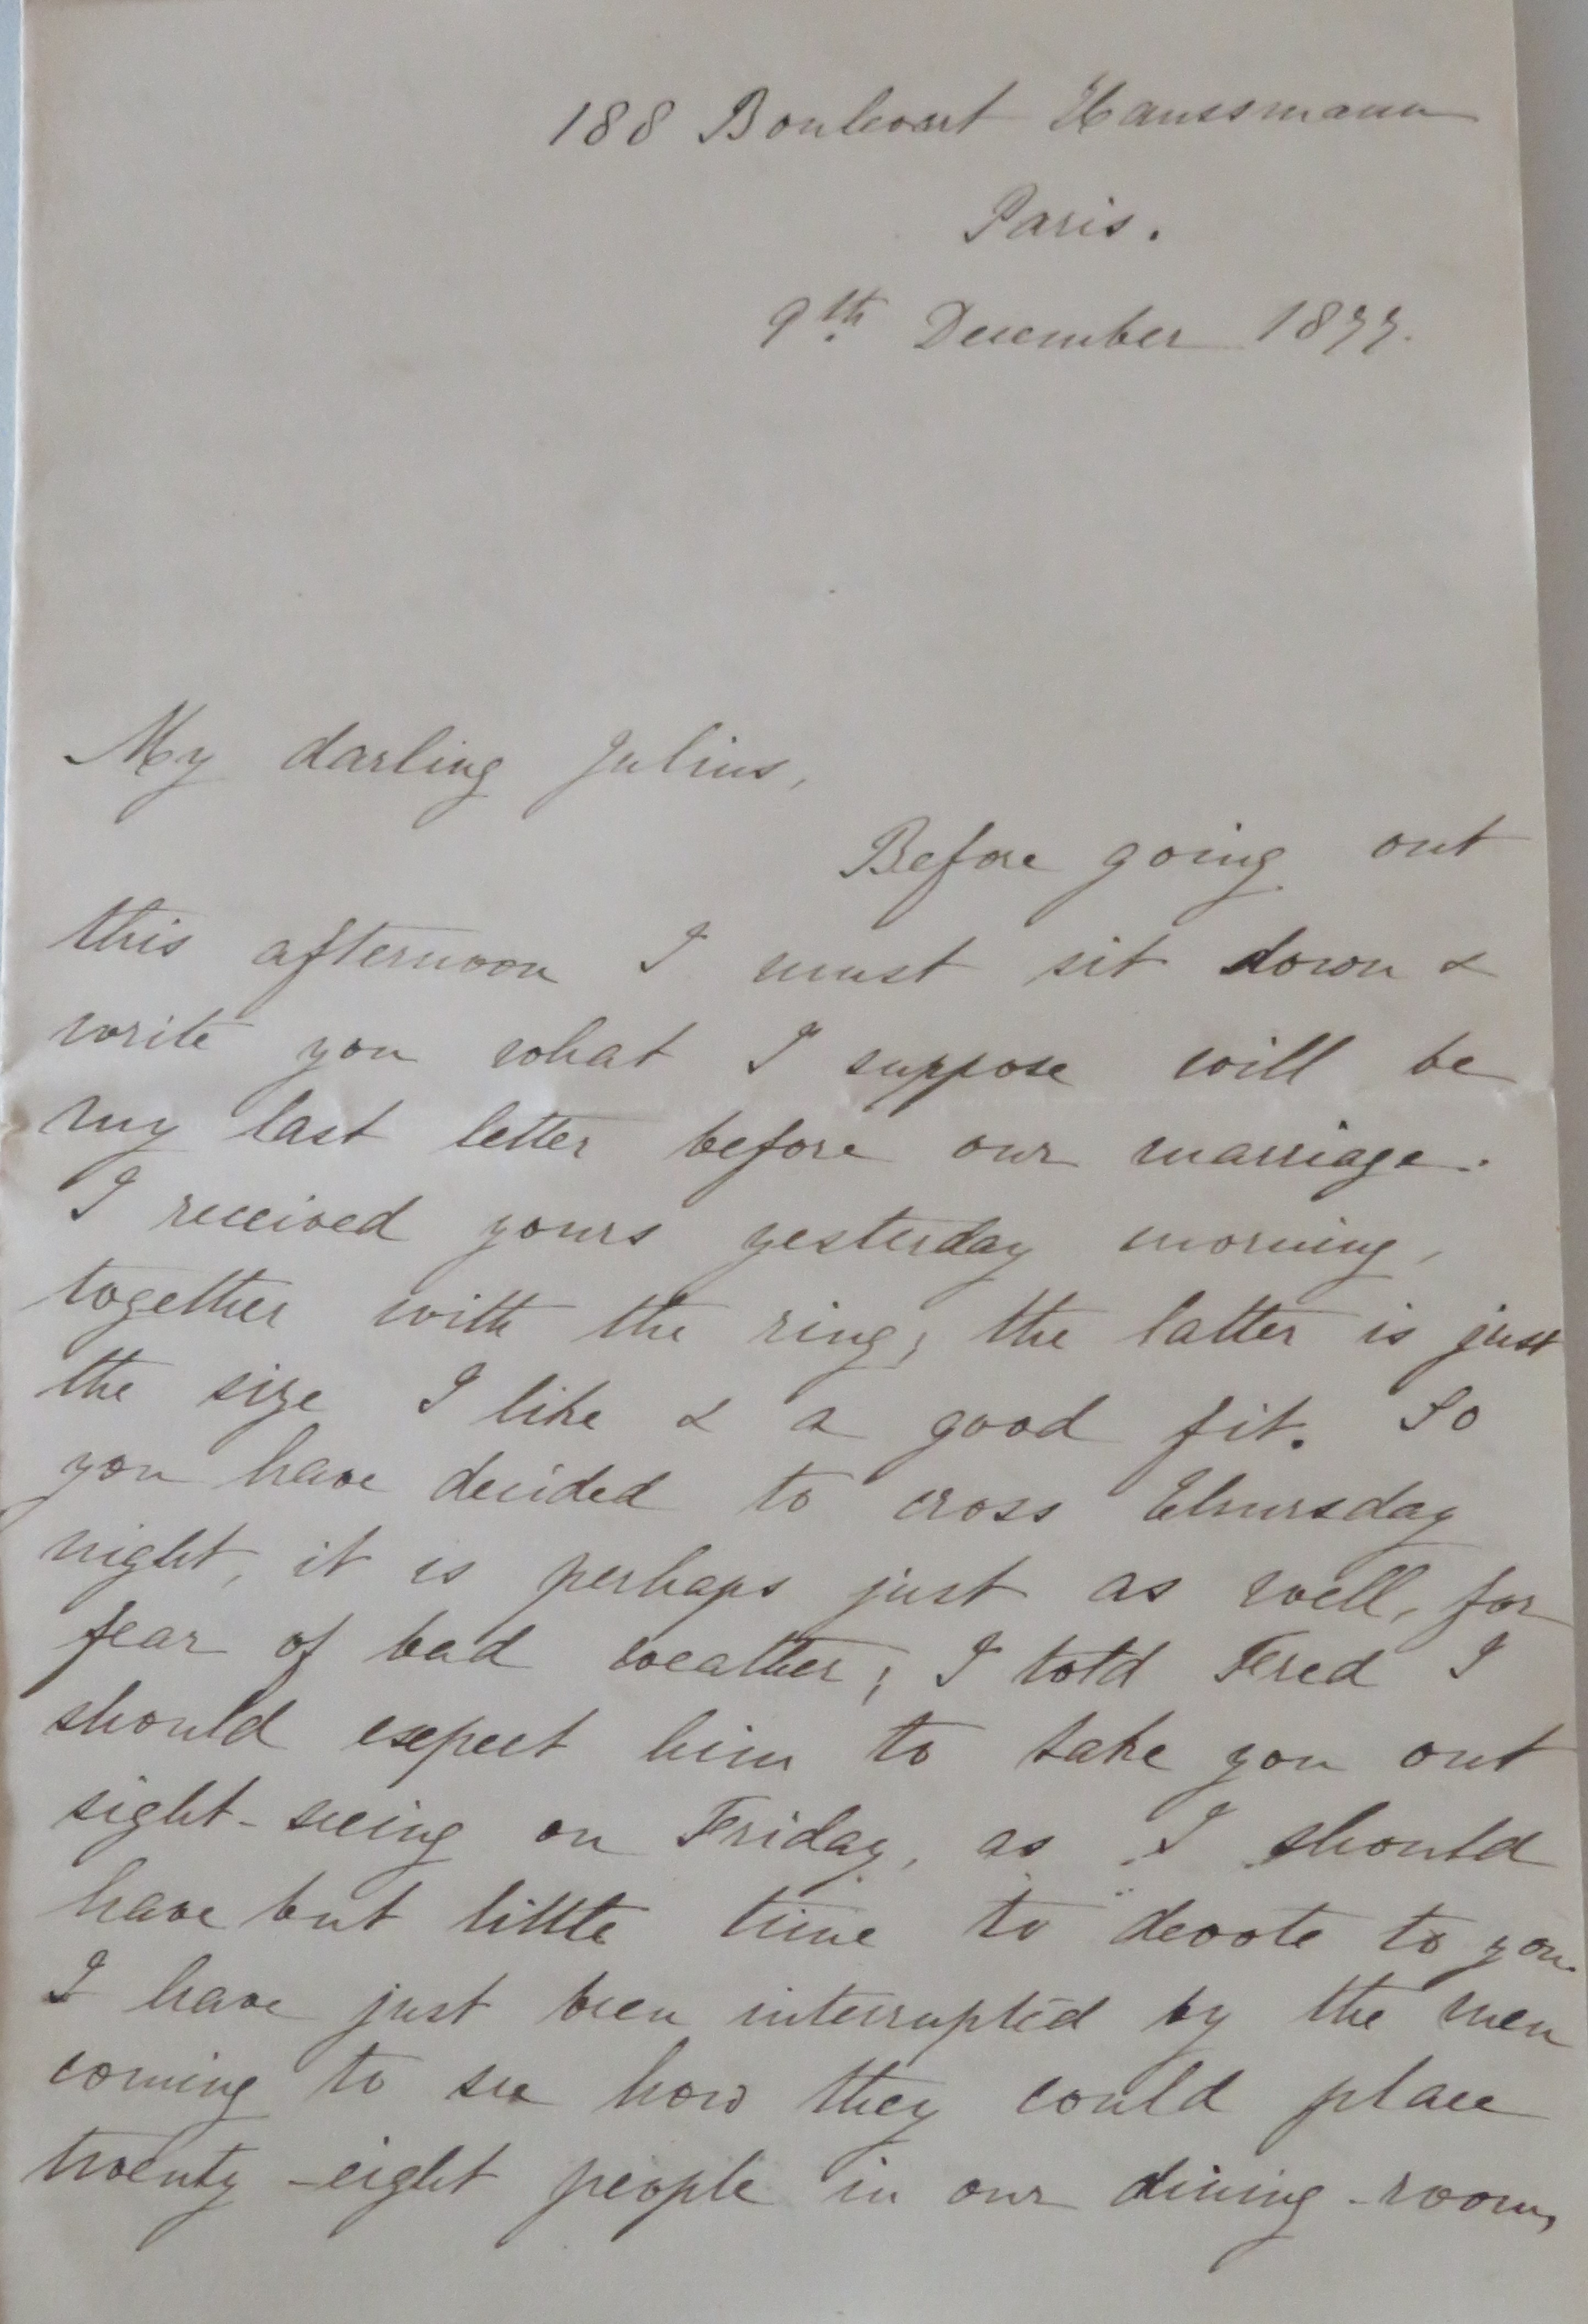 188 Boulevart Haussmann
Paris.
9th December 1877.
My darling Julius,
Before going out
this afternoon I must sit down &
write you what I suppose will be
my last letter before our marriage.
I received yours yesterday morning,
together with the ring; the latter is just
the size I like & a good fit. So
you have decided to cross Thursday
night, it is perhaps just as well, for
fear of bad weather; I told Fred I
should expect him to take you out
sight-seeing on Friday, as I should
have but little time to devote to you.
I have just been interrupted by the men
coming to see how they could place
twenty-eight people in our dining-room,